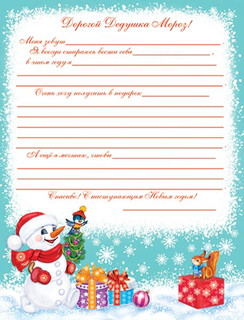 Дорогой Дедушка Мороз!
Меня зовут
Я всегда стараюсь вести себя
в этом году я
Очень хочу получить в подарок
А ещё я мечтаю, чтобы
Спасибо! С наступающим Новым годом!